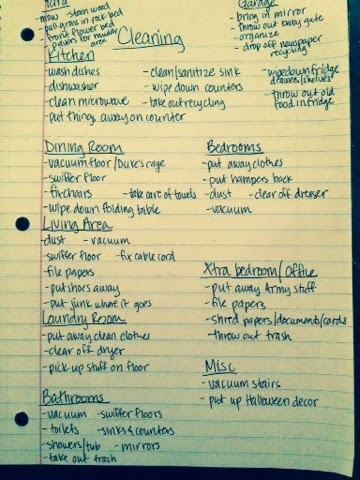 Yard
-mow -stain wood
-put grass in rock bed
-front flower bed
-pavers for muddy area
Garage
-bring in mirror
-throw out baby gate
-organize
-drop off newspaper recycling
Cleaning
Kitchen
-wash dishes -clean/sanitize sink -wipe down fridge drawers/shelves
-dishwasher -wipe down counters
-clean microwave -take out recycling -throw out old food in fridge
-put things away on counter
Dining Room
-vacuum floor/Duke's cage
-swiffer floor
-fix chairs -take care of towels
-wipe down folding table
Bedrooms
-put away clothes
-put hampers back
-dust -clear off dresser
-vacuum
Living Area
-dust -vacuum
-swiffer floor -fix cable cord
-file papers
-put shoes away
-put junk where it goes
Xtra bedroom/Office
-put away Army stuff
-file papers
-shred papers/documents/cards
-throw out trash
Laundry Room
-put away clean clothes
-clear off dryer
-pick up stuff on floor
Misc
-vacuum stairs
-put up Halloween decor
Bathrooms
-vacuum -swiffer floors
-toilets -sinks & counters
-showers/tub -mirrors
-take out trash